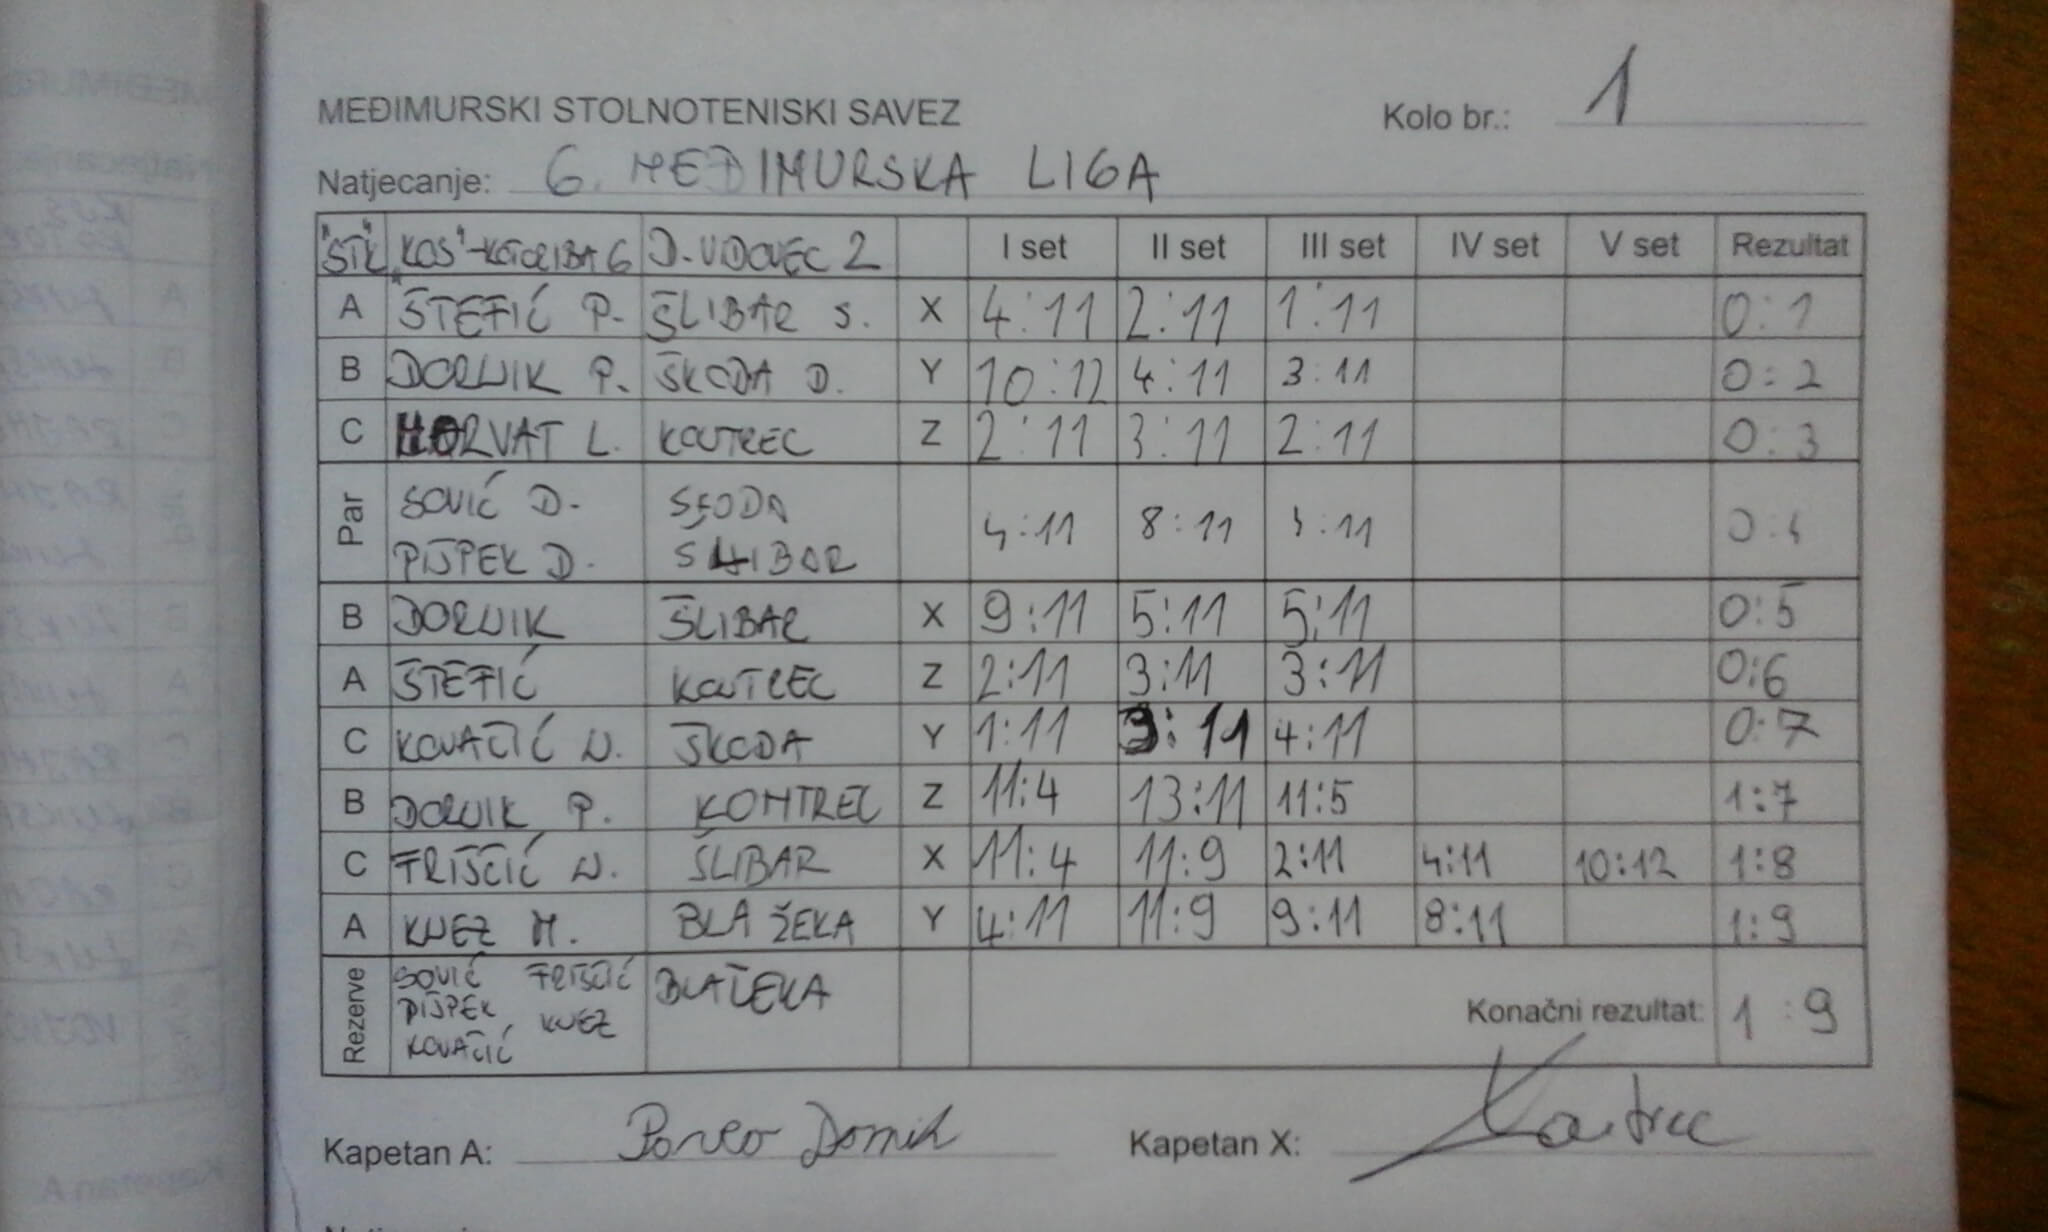 MEĐIMURSKI STOLNOTENISKI SAVEZ Kolo br.: 1
Natjecanje: 6. MEĐIMURSKA LIGA
"STK "KOS"-KOTORIBA 6 D. VDOVEC 2 I set II set III set IV set V set Rezultat
A ŠTEFIĆ P. ŠLIBAR S. X 4:11 2:11 1:11 0:1
B DORNIK P. ŠKODA D. Y 10:12 4:11 3:11 0:2
C HORVAT L. KONTREC Z 2:11 3:11 2:11 0:3
Par SOVIĆ D. 4:11 8:11 4:11 0:4
PIŠPEK D. SLIBAR
B DORNIK ŠLIBAR X 9:11 5:11 5:11 0:5
A ŠTEFIĆ KONTREC Z 2:11 3:11 3:11 0:6
C KOVAČIĆ N. ŠKODA Y 1:11 3:11 4:11 0:7
B DORNIK P. KONTREC Z 11:4 13:11 11:5 1:7
C FRIŠČIĆ N. ŠLIBAR X 11:4 11:9 2:11 4:11 10:12 1:8
A KNEZ M. BLAŽEKA Y 4:11 11:9 9:11 8:11 1:9
Rezerve SOVIĆ FRIŠČIĆ BLAŽEKA
PIŠPEK KNEZ Konačni rezultat: 1:9
KOVAČIĆ
Kapetan A: Dornik Kapetan X: Kontrec